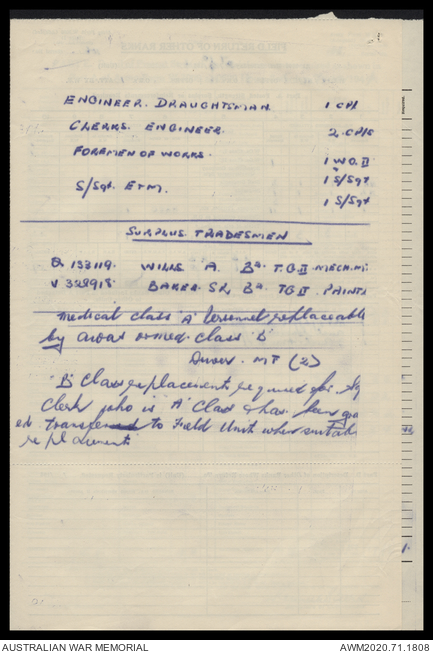 ENGINEER. DRAUGHTSMAN. 1 CPL
CLERKS. ENGINEER. 2. CPLS
FOREMEN OF WORKS. 1 W.O. II
1 S/Sgt
S/Sgt. E.T.M. 1 S/Sgt
SURPLUS. TRADESMEN
Q. 133119. WILLS A. T.G. II MECH.
V 328918 BAKER SR TG II. PAINT
Medical class "A" Personnel replaceable
by or med. class "B"
Driver. MT (2)
"B" Class replacement required for
Clerk who is "A" Class & has been
ed transfer to Field Unit when suitab
replacement
AUSTRALIAN WAR MEMORIAL
AWM2020.71.1808